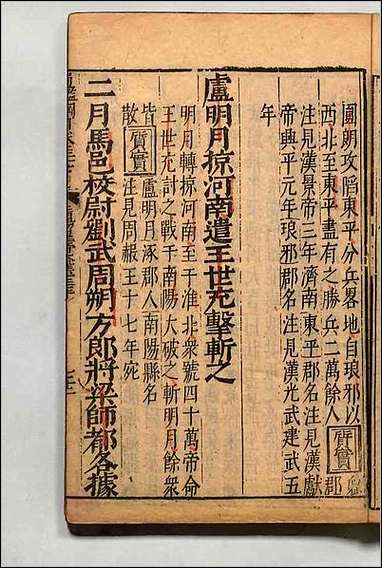 圓朗攻䧟東平分兵畧地自琅邪以
西北至東平盡有之勝兵二萬餘人
質實
郡
注見漢景帝三年濟南東平郡名注見漢獻
帝興平元年琅邪郡名注見漢光武建武五
年
盧明月掠河南遣王世充擊斬之
明月轉掠河南至于淮北衆號四十萬帝命
王世充討之戰于南陽大破之斬明月餘衆
皆
散
質實
盧明月涿郡人南陽縣名
注見周赧王十七年死
二月馬邑校尉劉武周朔方郎將梁師都各據